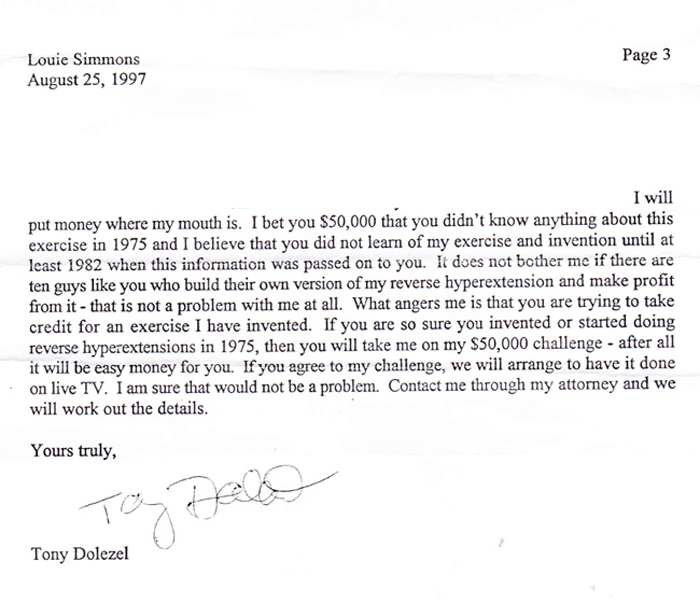 Louie Simmons
Page 3
August 25, 1997
I will
put money where my mouth is. I bet you $50,000 that you didn't know anything about this
exercise in 1975 and I believe that you did not learn of my exercise and invention until at
least 1982 when this information was passed on to you. It does not bother me if there are
ten guys like you who build their own version of my reverse hyperextension and make profit
from it - that is not a problem with me at all. What angers me is that you are trying to take
credit for an exercise I have invented. If you are so sure you invented or started doing
reverse hyperextensions in 1975, then you will take me on my $50,000 challenge - after all
it will be easy money for you. If you agree to my challenge, we will arrange to have it done
on live TV. I am sure that would not be a problem. Contact me through my attorney and we
will work out the details.
Yours truly,
Tony Dolezel